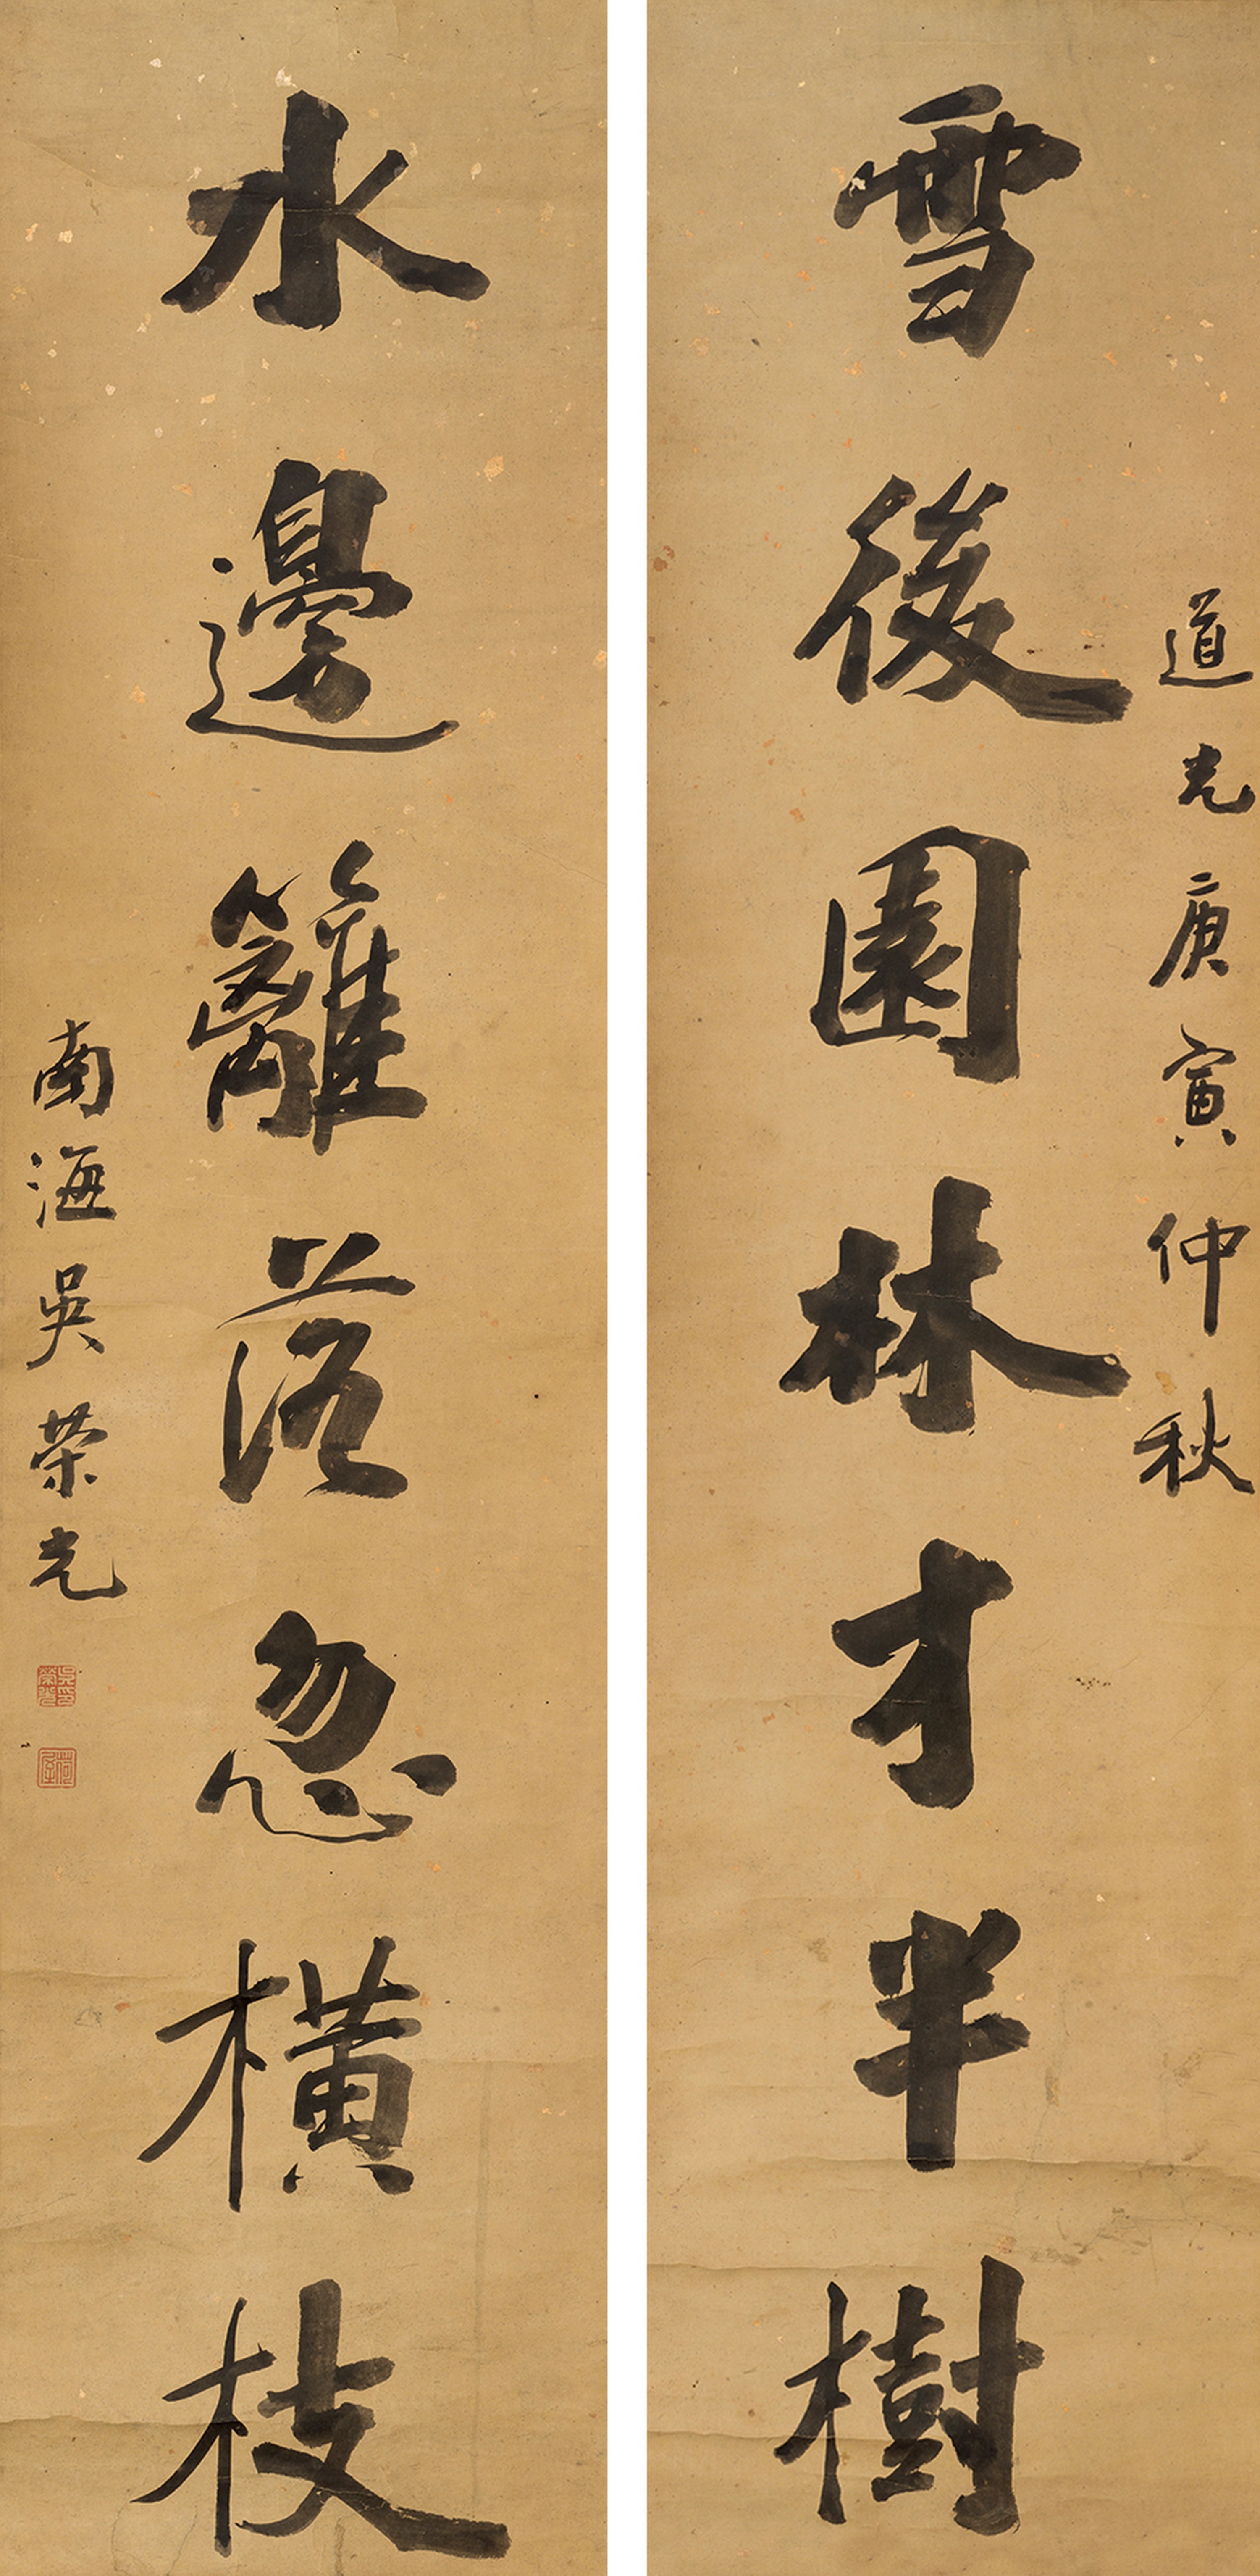 道光庚寅仲秋
雪後園林才半樹
水邊籬落忽橫枝
南海吳榮光
吳榮光印
荷屋